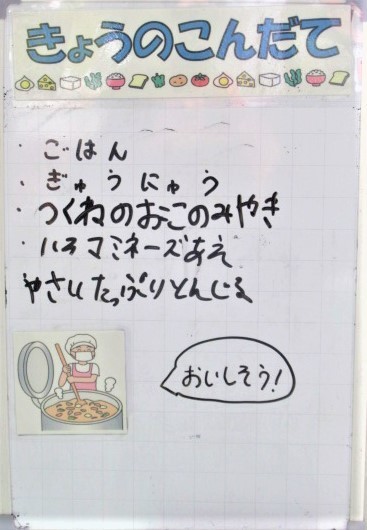 きょうのこんだて
・ごはん
・ぎゅうにゅう
・つくねのおこのみやき
・ハネマミネーズあえ
やさいたっぷりとんじる
おいしそう!